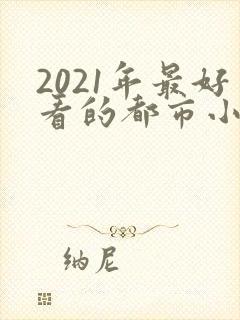 2021年最好
看的都市小
纳尼